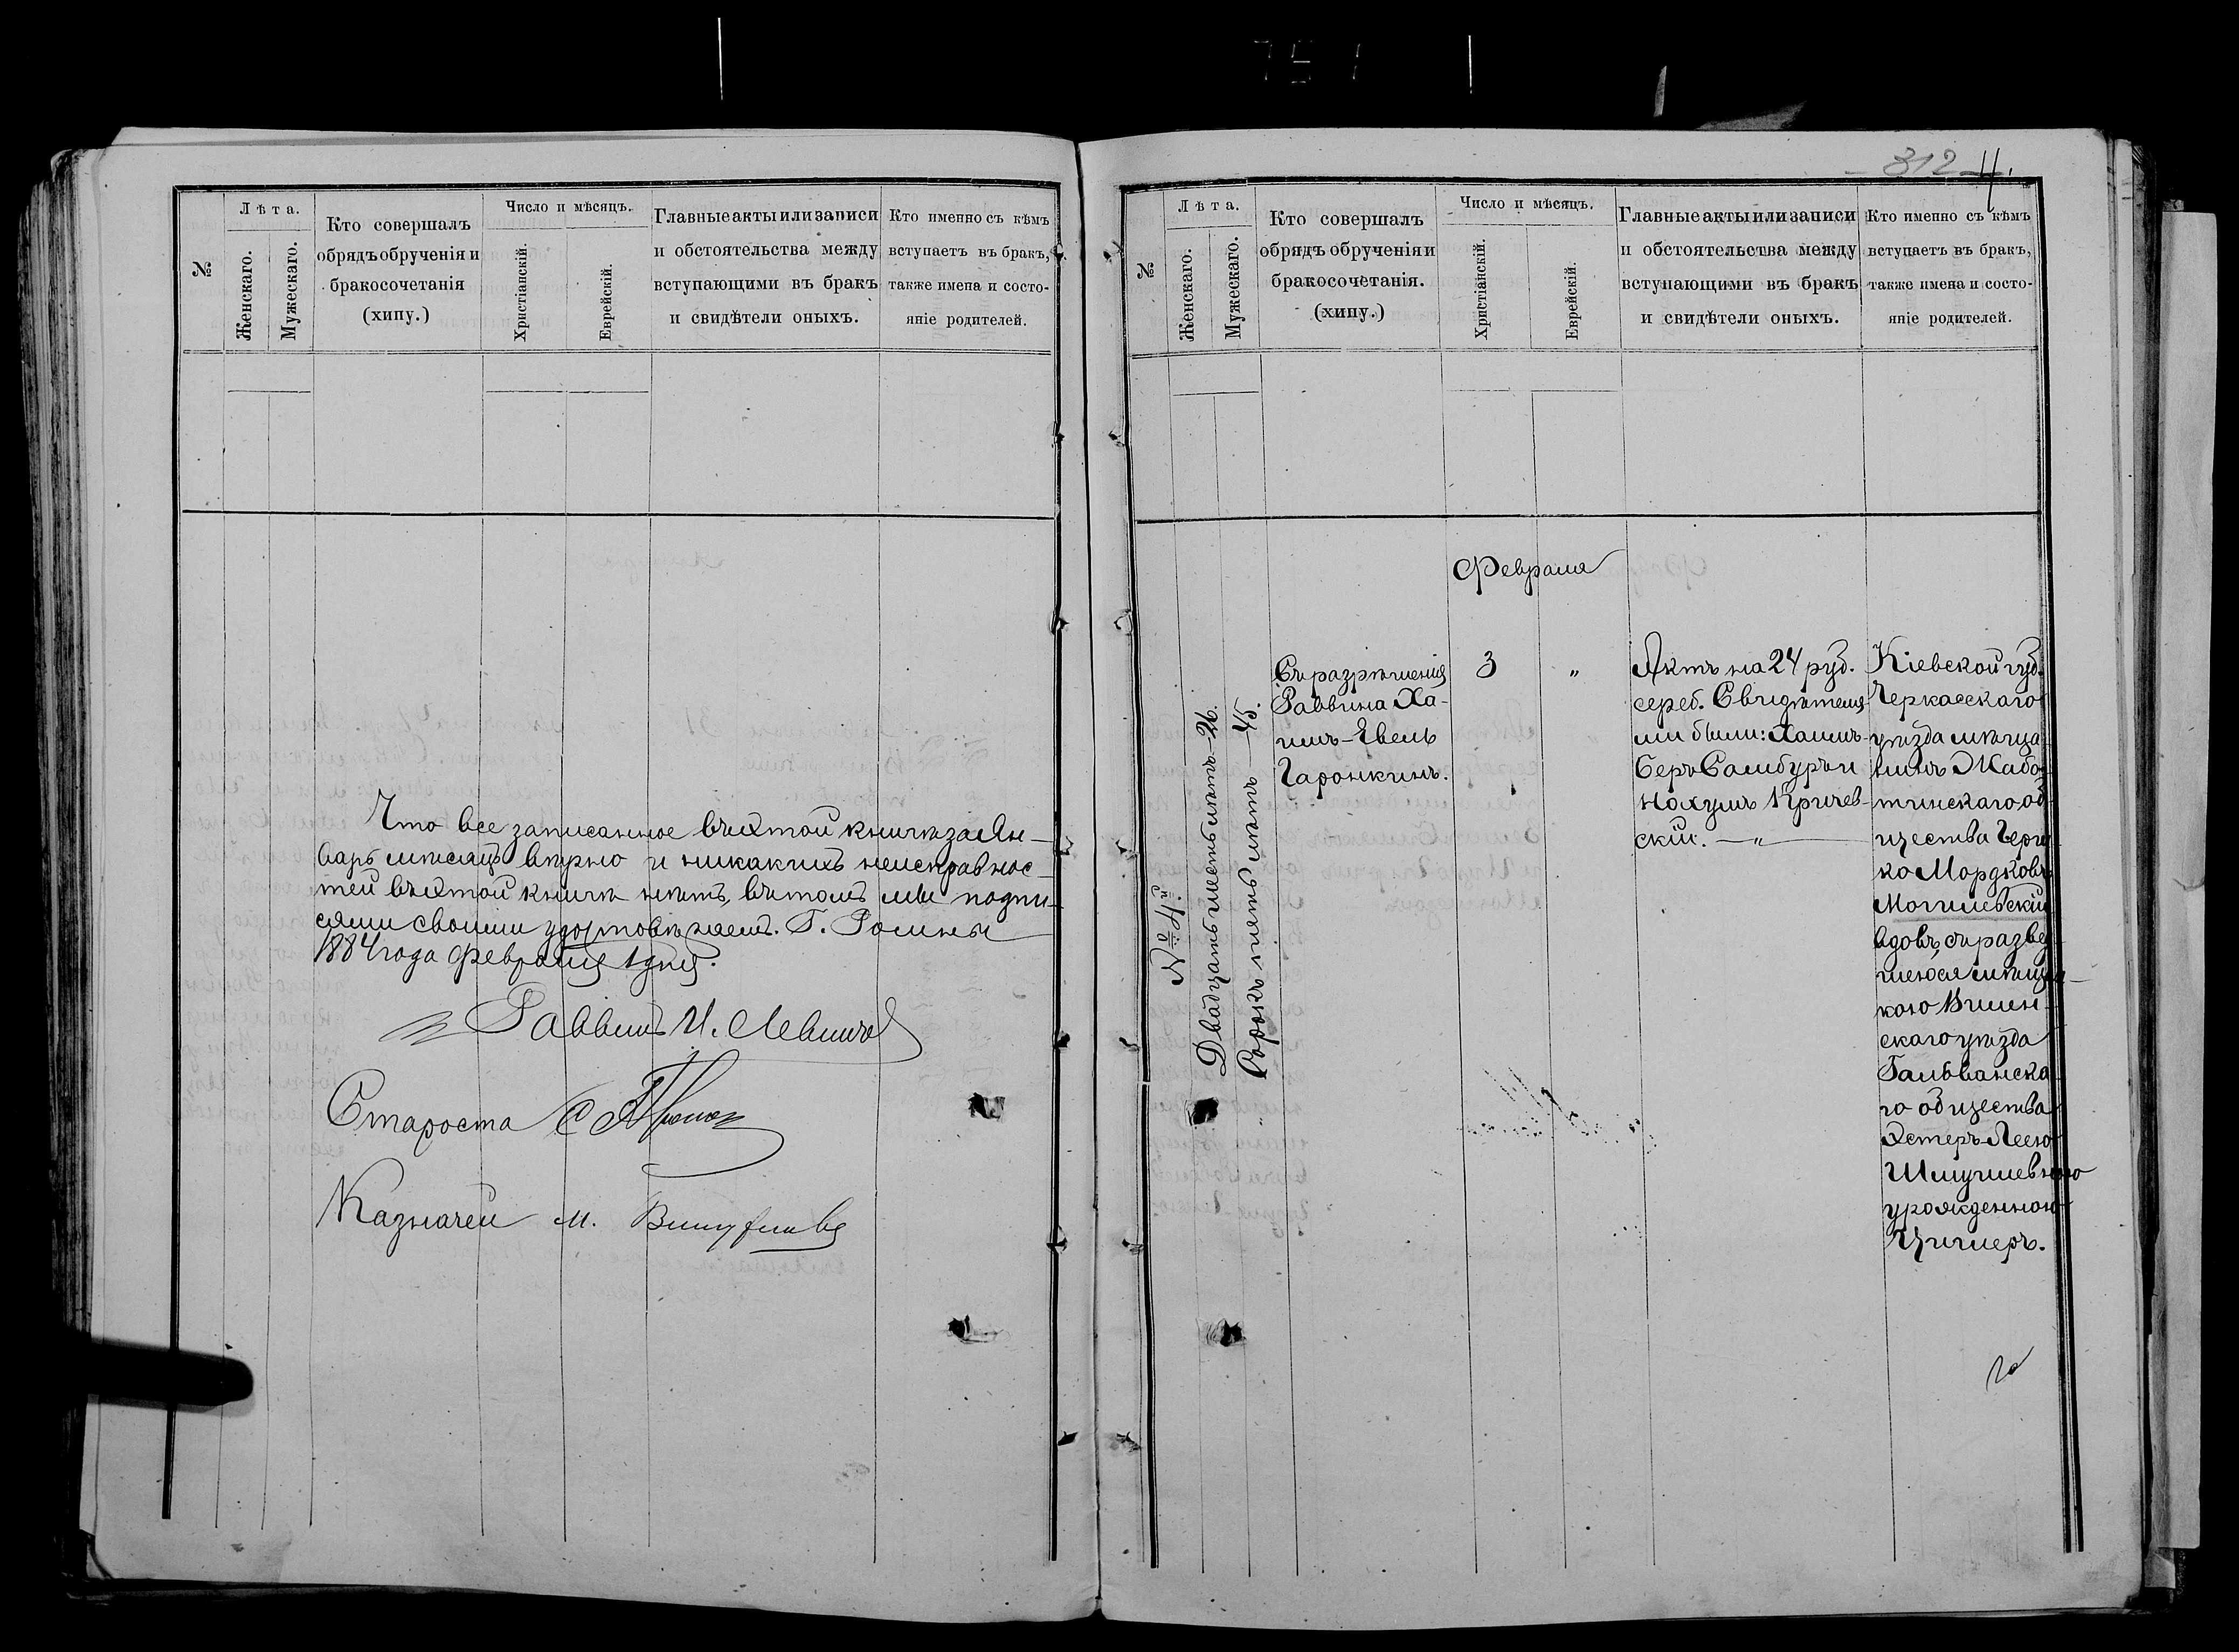 №
Лѣта.
Женскаго.
Мужескаго.
Кто совершалъ
обрядъ обрученія и
бракосочетанія
(хипу.)
Число и мѣсяцъ.
Христіанскій.
Еврейскій.
Главные акты или записи
и обстоятельства между
вступающими въ бракъ
и свидѣтели оныхъ.
Кто именно съ кѣмъ
вступаетъ въ бракъ,
также имена и состо-
яніе родителей.
Что все записанное въ этой книгѣ за Ян-
варь мѣсяцъ вѣрно и никакихъ неисправнос-
тей въ этой книгѣ нѣтъ, въ томъ мы подпи-
сями своими удостовѣряемъ. Г. Ромны
1884 года февраля 1 дня.
Раввинъ И. Левинъ
Староста С
Казначей М.
312 4.
№
Лѣта.
Женскаго.
Мужескаго.
Кто совершалъ
обрядъ обрученія и
бракосочетанія.
(хипу.)
Число и мѣсяцъ.
Христіанскій.
Еврейскій.
Главные акты или записи
и обстоятельства между
вступающими въ бракъ
и свидѣтели оныхъ.
Кто именно съ кѣмъ
вступаетъ въ бракъ,
также имена и состо-
яніе родителей.
Февраля
№ 4й
Двадцать шесть лѣтъ — 26.
Сорокъ пять лѣтъ — 45.
Съ разрѣшенія
Раввина Ха-
имъ-Евель
Гаронкинъ.
3
"
Актъ на 24 руб.
сереб. Свидѣтеля-
ми были: Хаимъ-
Беръ Самбуръ и
Нохумъ Кричев-
скій. — " —
Кіевской губ.
Черкасскаго
уѣзда мѣща-
нинъ Жабо-
тинскаго об-
щества Герш-
ко Мордковъ
Могилевскій
вдовъ, съ развед-
шеюся мѣщан-
кою Вилен-
скаго уѣзда
Гамбванска-
го общества
Эстеръ-Леею
Шмуилевною
урожденною
Цимеръ.